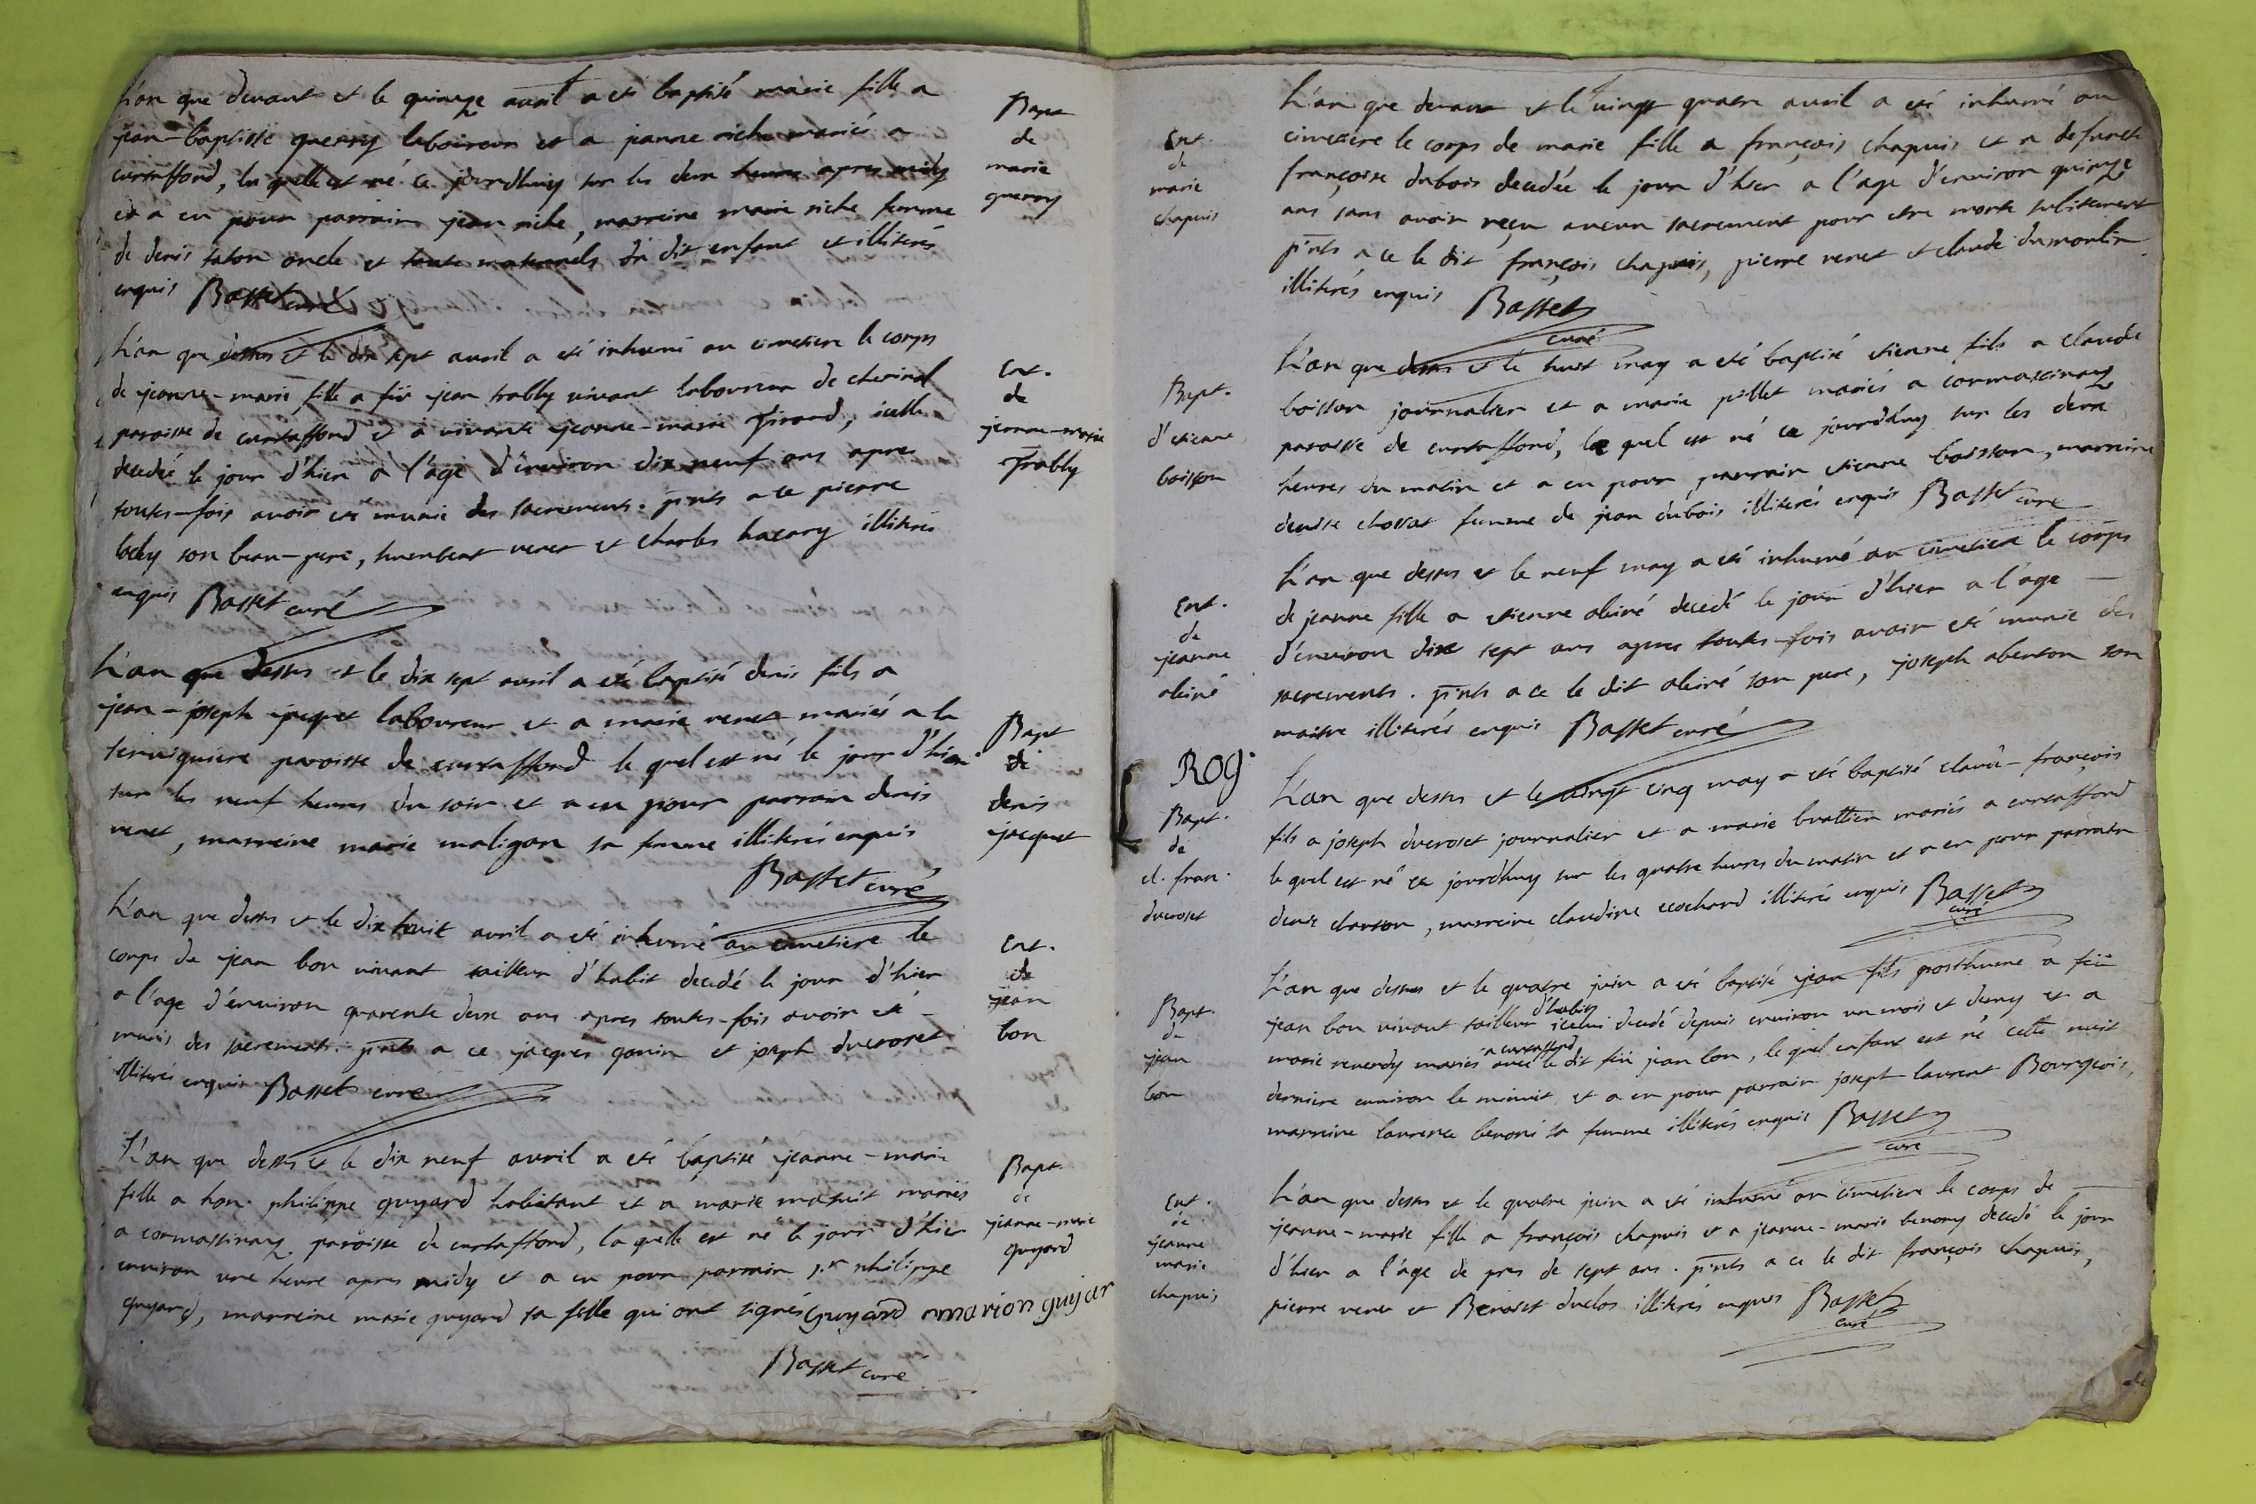 L'an que devant et le quinze avril a eté baptisé marie fille a
jean-baptiste guerry laboureur et a jeanne riche mariés a
curtaffond, la quelle est né ce jourdhuy sur les deux heures apres midy
et a eu pour parrain jean riche, marreine marie riche femme
de denis taton oncle et tante maternels du dit enfant et illiterés
enquis Basset curé
Bapt
de
marie
guerry
L'an que dessus et le dix sept avril a eté inhumé au cimetiere le corps
de jeanne-marie fille a fëu jean trably vivant laboureur de
paroisse de curtaffond et a vivante jeanne-marie Tirand, icelle
decedée le jour d'hier a l'age d'environ dix neuf ans apres
toutes-fois avoir eté munie des sacrements. p̄nts a ce pierre
son beau-pere, humbert venet et charles illiterés
enquis Basset curé
Ent.
de
jeanne-marie
Trably
L'an que dessus et le dix sept avril a eté baptisé denis fils a
jean-joseph jacquet laboureur et a marie venet mariés a la
paroisse de curtaffond le quel est né le jour d'hier
sur les neuf heures du soir et a eu pour parrain denis
venet, marreine marie maligon sa femme illiterés enquis
Basset curé
Bapt
de
denis
jacquet
L'an que dessus et le dix huit avril a eté inhumé au cimetiere le
corps de jean bon vivant tailleur d'habit decedé le jour d'hier
a l'age d'environ quarente deux ans apres toutes-fois avoir eté
munis des sacrements. p̄nts a ce jacques gonin et joseph ducroset
illiterés enquis Basset curé
Ent.
de
jean
bon
L'an que dessus et le dix neuf avril a eté baptisé jeanne-marie
fille a hon. philippe guyard habitant et a marie mariés
a cormassinaz paroisse de curtaffond, la quelle est né le jour d'hier
environ une heure apres midy et a eu pour parrain sr philippe
guyard, marreine marie guyard sa fille qui ont signés Guyard marion guijar
Basset curé
Bapt
de
jeanne-marie
guyard
Ent.
de
marie
chapuis
L'an que devant et le vingt quatre avril a eté inhumé au
cimetiere le corps de marie fille a françois chapuis et a defuncte
françoise dubois decedée le jour d'hier a l'age d'environ quinze
ans sans avoir reçu aucun sacrement pour etre morte subitement
p̄nts a ce le dit françois chapuis, pierre venet et claude dumoulin
illiterés enquis Basset
curé
Bapt.
d'etienne
boisson
L'an que dessus et le huit may a eté baptisé etienne fils a claude
boisson journalier et a marie pillet mariés a cormassinaz
paroisse de curtaffond, le quel est né ce jourdhuy sur les deux
heures du matin et a eu pour parrain etienne boisson, marreine
denise chossat femme de jean dubois illiterés enquis Basset curé
Ent.
de
jeanne
abiné
L'an que dessus et le neuf may a eté inhumé au cimetiere le corps
de jeanne fille a etienne abiné decedé le jour d'hier a l'age
d'environ dix sept ans apres toutes-fois avoir eté munie des
sacrements. p̄nts a ce le dit abiné son pere, joseph abenton son
maitre illiterés enquis Basset curé
ROG.
Bapt.
de
cl. fran.
ducroset
L'an que dessus et le vingt cinq may a eté baptisé claude-françois
fils a joseph ducroset journalier et a marie mariés a curtaffond
le quel est né ce jourdhuy sur les quatre heures du matin et a eu pour parrain
denis chanson, marreine claudine ecochard illiterés enquis Basset
curé
Bapt.
de
jean
bon
L'an que dessus et le quatre juin a eté baptisé jean fils posthume a fëu
jean bon vivant tailleur d'habits icelui decedé depuis environ un mois et demy et a
marie reverdy mariés a curtaffond avec le dit fëu jean bon, le quel enfant est né cette nuit
derniere environ le minuit, et a eu pour parrain joseph-laurent Bourgeois,
marreine laurence benoni sa femme illiterés enquis Basset
curé
Ent.
de
jeanne
marie
chapuis
L'an que dessus et le quatre juin a eté inhumé au cimetiere le corps de
jeanne-marie fille a françois chapuis et a jeanne-marie benony decedé le jour
d'hier a l'age de pres de sept ans. p̄nts a ce le dit françois chapuis,
pierre venet et Benoist duclos illiterés enquis Basset
curé